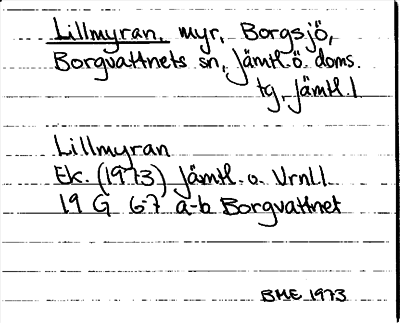 Lillmyran, myr, Borgsjö,
Borgvattnets sn, Jämtl. ö. doms.
tg, Jämtl. l
Lillmyran
Ek. (1973) Jämtl. o. Vrnl l
19 G 67 a-b Borgvattnet
BME 1973